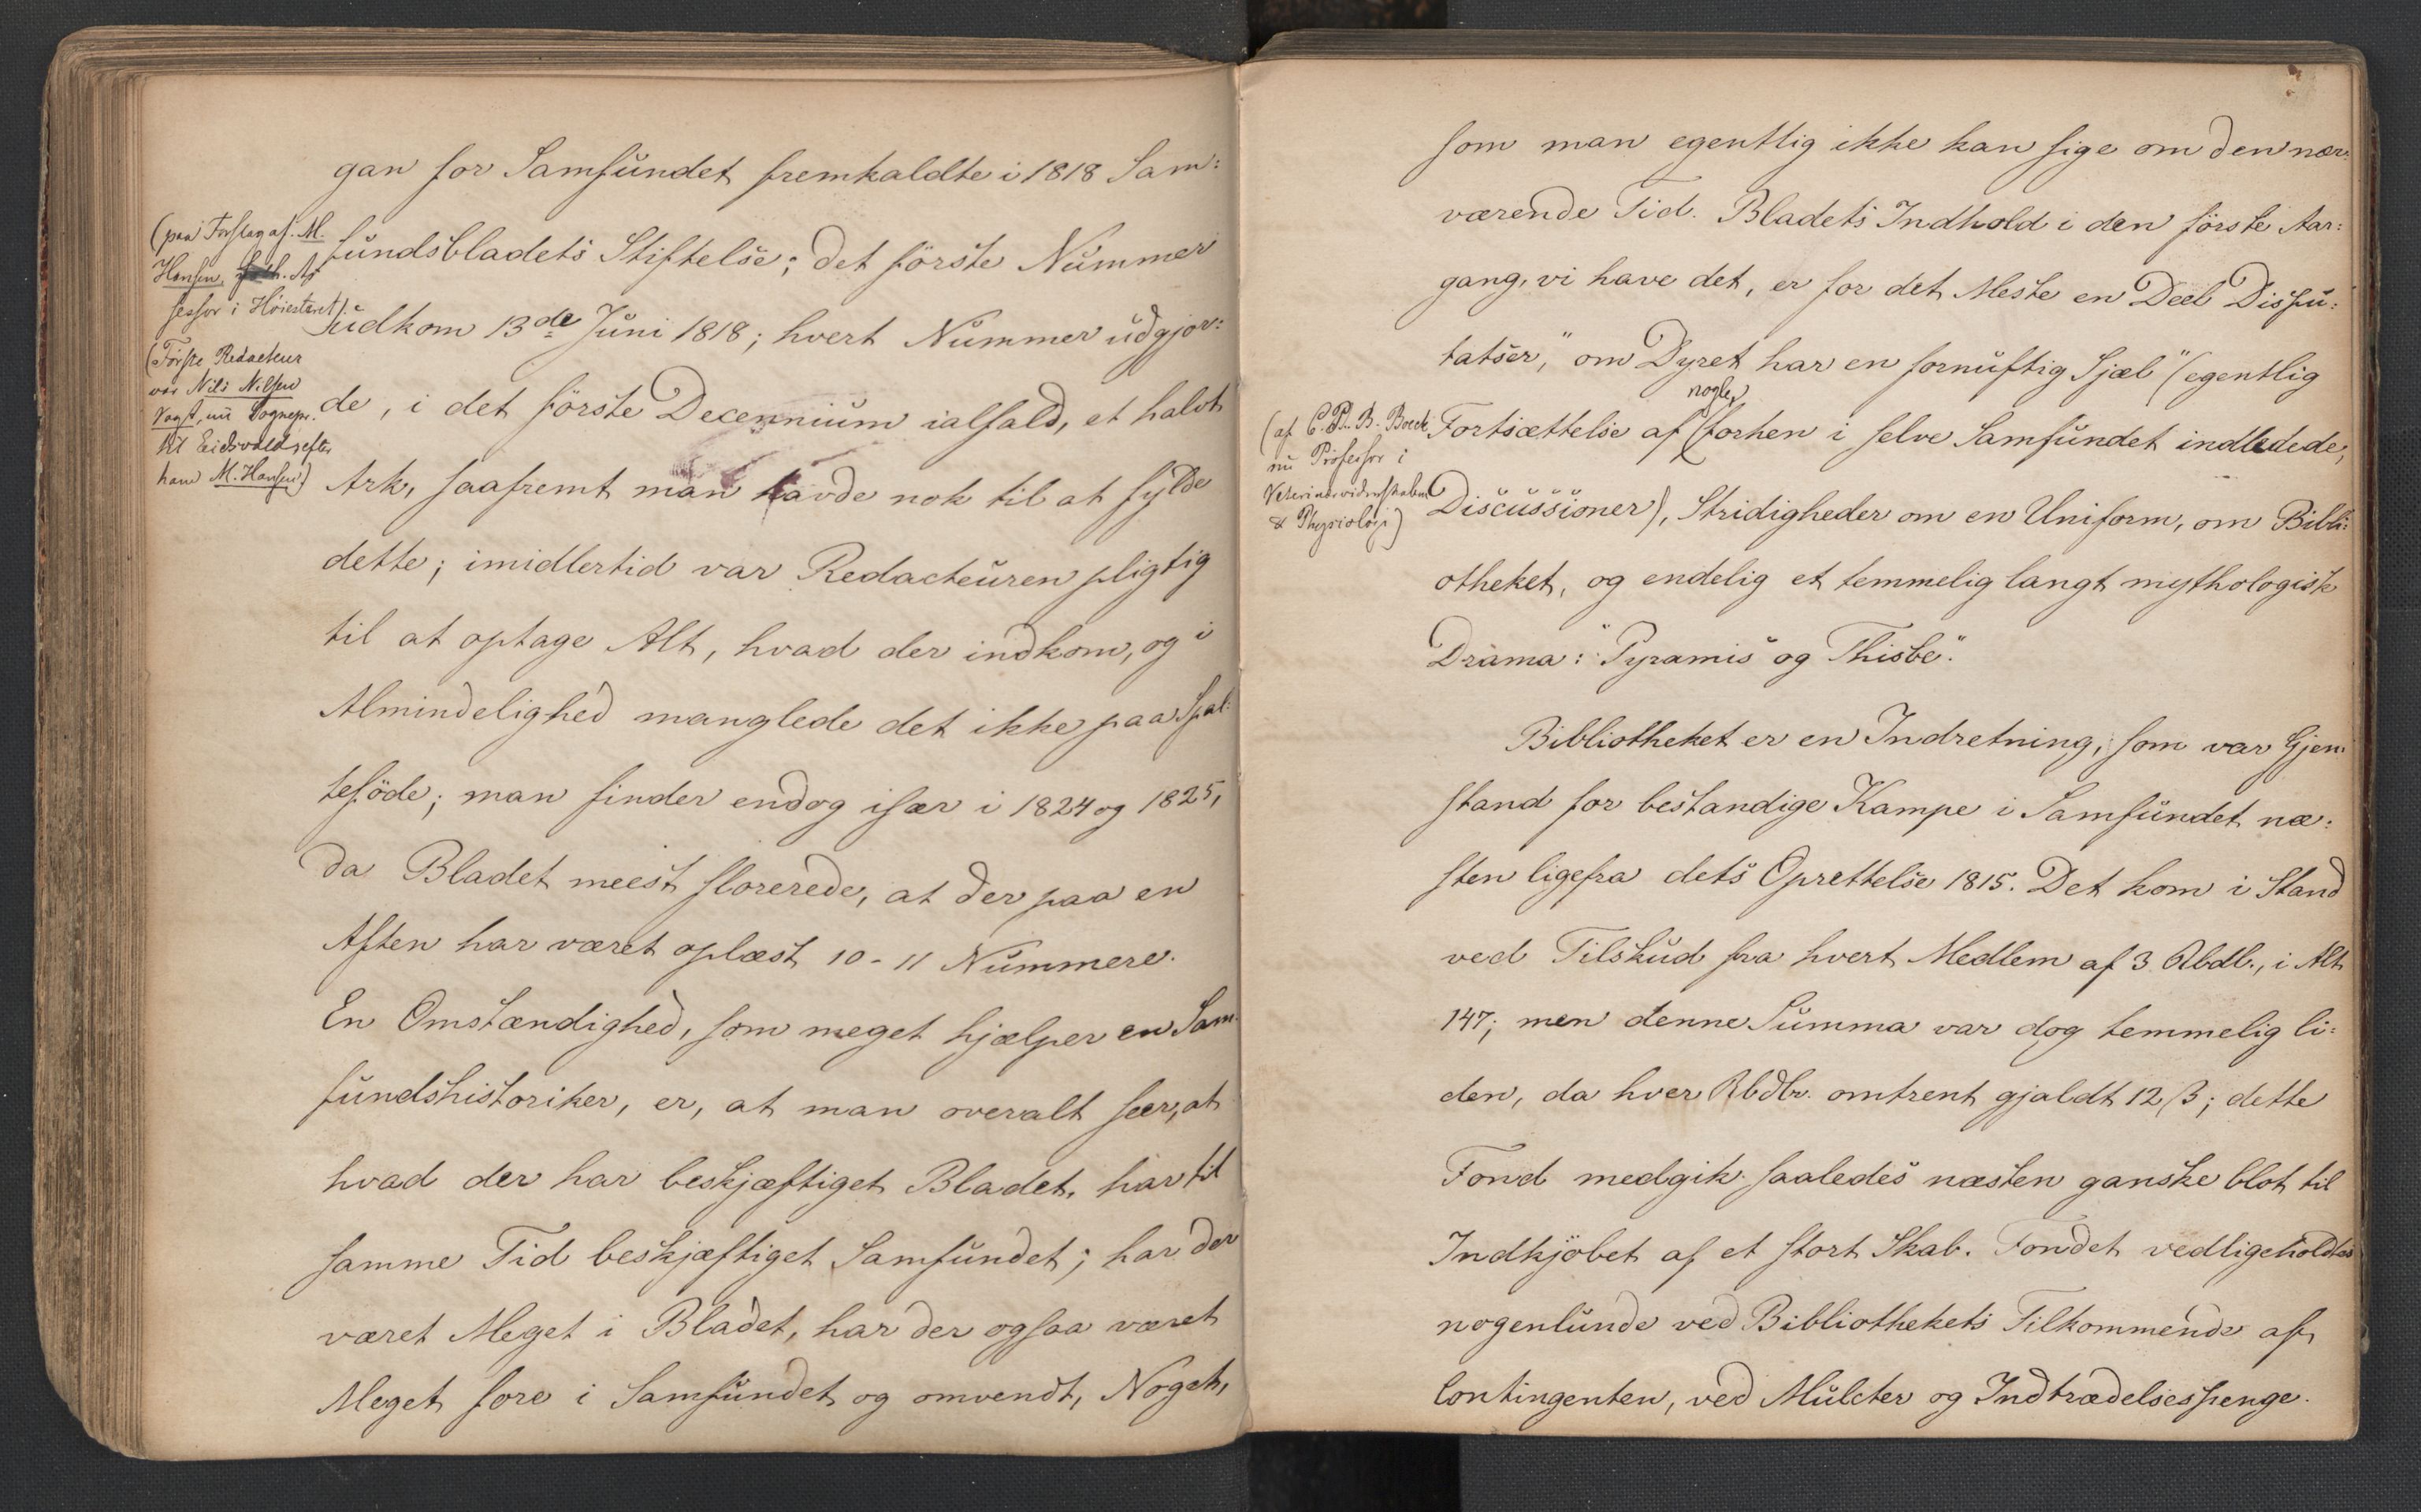 gan for Samfundet fremkaldte i 1818 Sam:
(paa Forslag af. M.
Hansen, As
sessor i Høiesteret)
fundsbladets Stiftelse; det förste Nummer
udkom 13de Juni 1818; hvert Nummer udgjor:
(Förste Redacteur
var Nils Nilsen
Vogt, nu Sognepr.
til Eidsvold, efter
ham M. Hansen)
de, i det förste Decennium ialfald, et halvt
Ark, saafremt man havde nok til at fylde
dette; imidlertid var Redacteuren pligtig
til at optage Alt, hvad der indkom, og i
Almindelighed manglede det ikke paa Spal:
teföde; man finder endog især i 1824 og 1825,
da Bladet meest florerede, at der paa en
Aften har været oplæst 10-11 Nummere.
En Omstændighed, som meget hjælper en Sam:
fundshistoriker, er, at man overalt seer, at
hvad der har beskjæftiget Bladet, har til
samme Tid beskjæftiget Samfundet; har der
været Meget i Bladet, har der ogsaa været
Meget fore i Samfundet og omvendt, Noget,
som man egentlig ikke kan sige om den nær:
værende Tid. Bladets Indhold i den förste Aar:
gang, vi have det, er for det Meste en Deel Dispu:
tatser, "om Dyret har en fornuftig Sjæl" (egentlig
nogle,
(af C. P. B. Boeck
nu Professor i
Veterinærvidenskaben
& Physiologi)
Fortsættelse af forhen i selve Samfundet indledede,
Discussioner), Stridigheder om en Uniform, om Bibli:
otheket, og endelig et temmelig langt mythologisk
Drama: "Pyramis og Thisbe".
Bibliotheket er en Indretning, som var Gjen:
stand for bestandige Kampe i Samfundet næ:
sten ligefra dets Oprettelse 1815. Det kom i Stand
ved Tilskud fra hvert Medlem af 3 Rbdlr., i Alt
147; men denne Summa var dog temmelig li:
den, da hver Rbdlr. omtrent gjaldt 12 ß; dette
Fond medgik saaledes næsten ganske blot til
Indkjöbet af et stort Skab. Fondet vedligeholdtes
nogenlunde ved Bibliothekets Tilkommende af
Contingenten, ved Mulcter og Indtrædelsespenge.